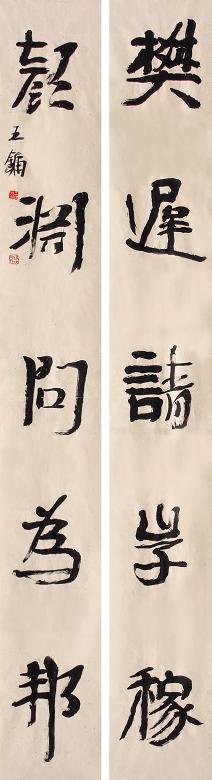 樊遲請学稼
顔淵問為邦
王鏞